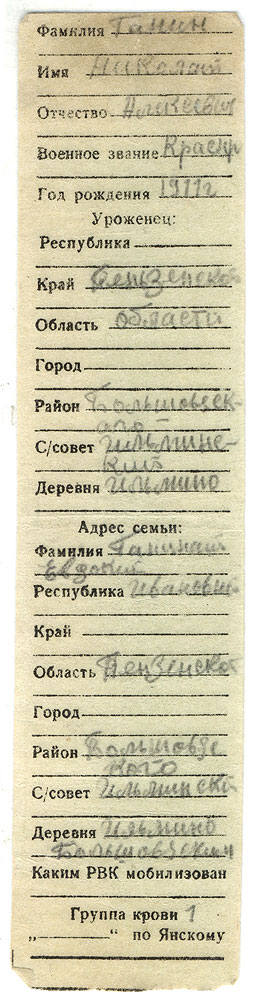 Фамилия Ганин
Имя Николай
Отчество Алексеевич
Военное звание Краснр
Год рождения 1911г
Уроженец:
Республика
Край Пензенской
Область области
Город
Район Большовзск-
ого
С/совет Ильмине-
кий
Деревня Ильмино
Адрес семьи:
Фамилия Ганинай
Евдокий
Республика Ивановый
Край
Область Пензенской
Город
Район Большовзс
кого
С/совет Ильминский
Деревня Ильмино
Большовзским
Каким РВК мобилизован
Группа крови 1
„ “ по Янскому